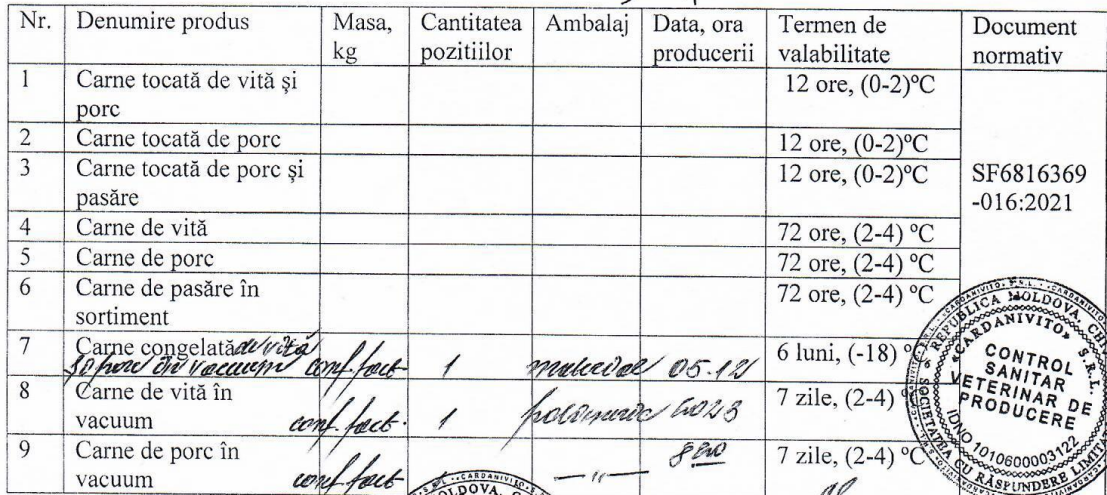 Nr. Denumire produs Masa, kg Cantitatea pozitiilor Ambalaj Data, ora producerii Termen de valabilitate Document normativ
1 Carne tocată de vită și porc 12 ore, (0-2)ºC
2 Carne tocată de porc 12 ore, (0-2)ºC
3 Carne tocată de porc și pasăre 12 ore, (0-2)ºC
SF6816369
-016:2021
4 Carne de vită 72 ore, (2-4) ºC
5 Carne de porc 72 ore, (2-4) ºC
6 Carne de pasăre în sortiment 72 ore, (2-4) ºC
7 Carne congelată de vită
și porc în vacuum conf. fact. 1 material 05.12 6 luni, (-18) º
8 Carne de vită în vacuum conf. fact. 1 7 zile, (2-4) º
9 Carne de porc în vacuum conf. fact. —"— 8 00 7 zile, (2-4) ºC
REPUBLICA MOLDOVA, CHI
«CARDANIVITO» S.R.L.
CONTROL
SANITAR
VETERINAR DE
PRODUCERE
IDNO 1010600003122
SOCIETATEA CU RĂSPUNDERE LIMITA